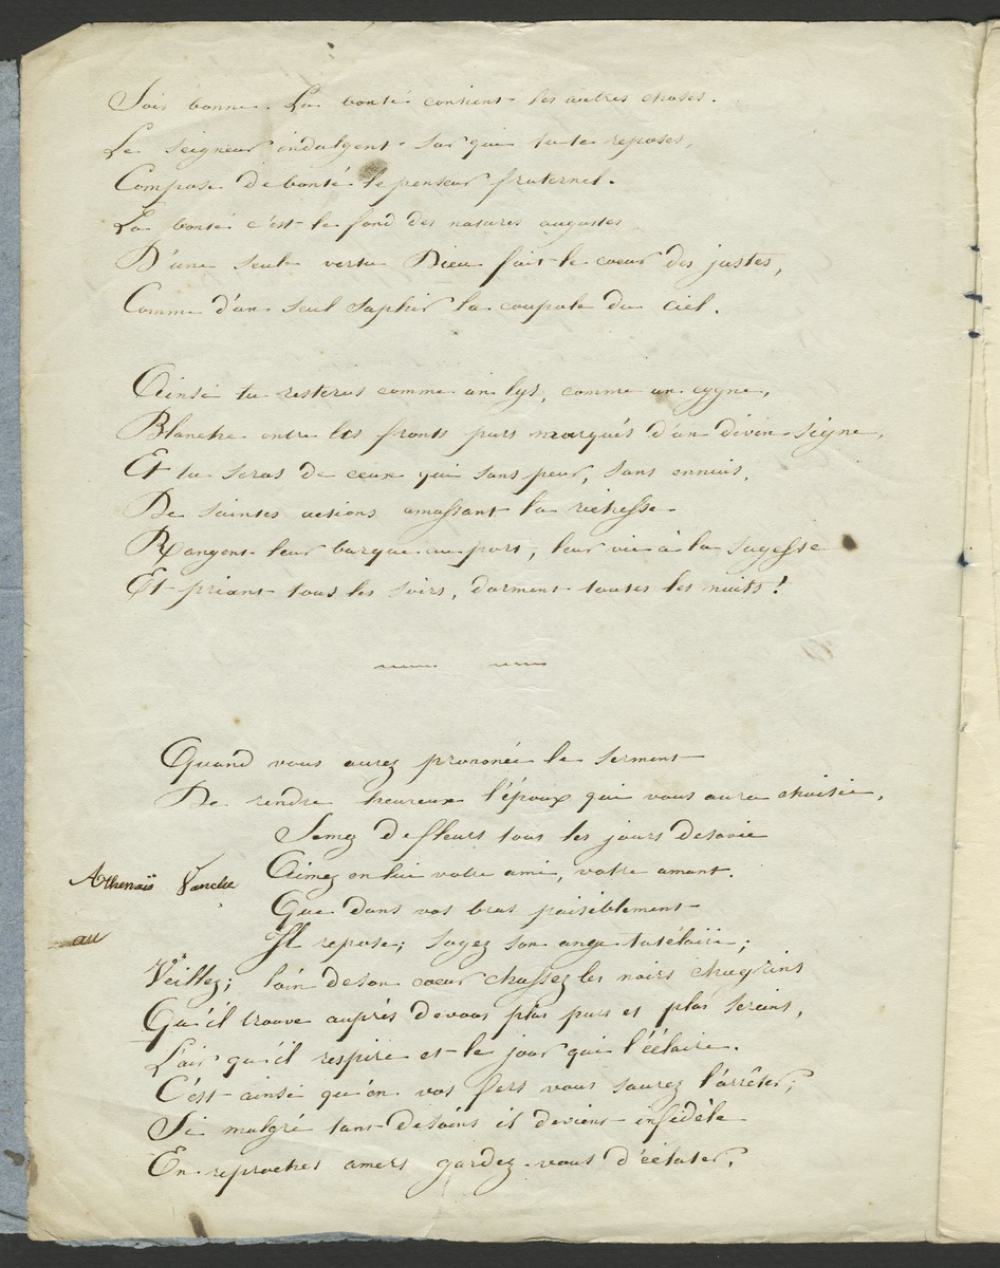 Sois bonne. La bonté contient les autres choses.
Le Seigneur indulgent sur qui tu te reposes,
Compose de bonté le penseur fraternel.
La bonté c'est le fond des natures augustes
D'une seule vertu Dieu fait le coeur des justes,
Comme d'un seul saphir la coupole du ciel.
Ainsi tu resteras comme un lys, comme un cygne,
Blanche entre les fronts purs marqués d'un divin signe,
Et tu seras de ceux qui sans peur, sans ennuis,
De saintes actions amassant la richesse
Rangent leur barque au port, leur vie à la sagesse
Et priant tous les soirs, dorment toutes les nuits!
Quand vous aurez prononcé le serment
De rendre heureux l'époux qui vous aura choisie,
Semez de fleurs tous les jours de sa vie
Aimez en lui votre ami, votre amant.
Athenaïs
Que dans vos bras paisiblement
au
Il repose; soyez son ange tutélaire;
Veillez; loin de son coeur chassez les noirs chagrins
Qu'il trouve auprès de vous plus purs et plus sereins,
L'air qu'il respire et le jour qui l'éclaire.
C'est ainsi qu'en vos fers vous saurez l'arrêter;
Si malgré tant de soins il devient infidèle
En reproches amers gardez-vous d'éclater;